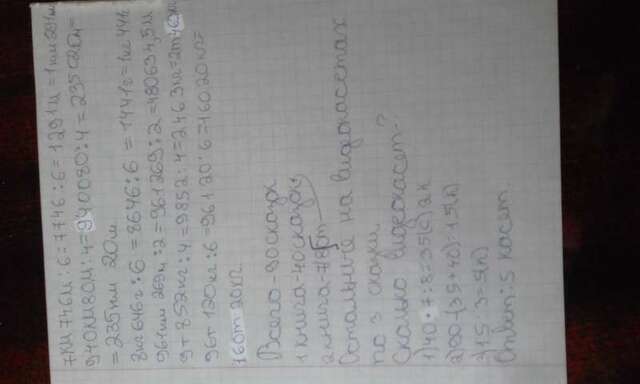 7км 746м : 6 = 7746 : 6 = 1291м = 1км 291м
940км 80м : 4 = 940080 : 4 = 235020м =
= 235км 20м
8кг 646г : 6 = 8646 : 6 = 1441г = 1кг 441г
961км 269м : 2 = 961269 : 2 = 480634,5м
9т 852кг : 4 = 9852 : 4 = 2463кг = 2т 463кг
96т 120кг : 6 = 96120 : 6 = 16020кг =
16т 20кг
Всего - 90 сказок
1 книга - 40 сказок
2 книга - 7/8 от
Остальные на видеокасетах
по 3 сказки
Сколько видеокасет?
1) 40 · 7 : 8 = 35(с) 2к
2) 90 - (35 + 40) = 15(к)
3) 15 : 3 = 5(к)
Ответ: 5 касет.